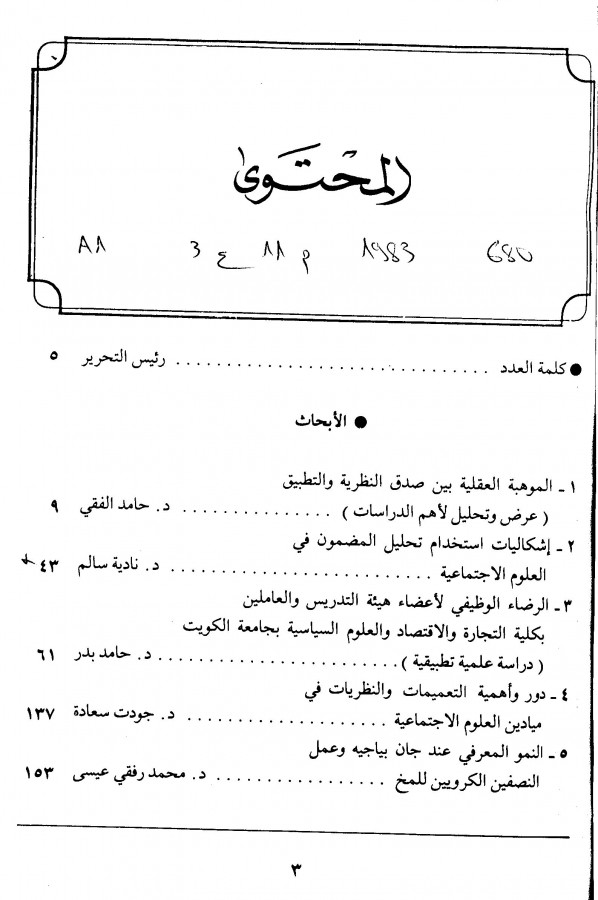 المحتوى
680 1983 م 11 ع 3 A1
● كلمة العدد . . . . . . . . . . . . . . . . . . . . . . . . . . . . . رئيس التحرير ٥
● الأبحاث
١ ـ الموهبة العقلية بين صدق النظرية والتطبيق
( عرض وتحليل لأهم الدراسات ) . . . . . . . . . . . . . . . د. حامد الفقي ٩
٢ ـ إشكاليات استخدام تحليل المضمون في
العلوم الاجتماعية . . . . . . . . . . . . . . . . . . . . . . . . . د. نادية سالم ٤٣
٣ ـ الرضاء الوظيفي لأعضاء هيئة التدريس والعاملين
بكلية التجارة والاقتصاد والعلوم السياسية بجامعة الكويت
( دراسة علمية تطبيقية ) . . . . . . . . . . . . . . . . . . . . . . . د. حامد بدر ٦١
٤ ـ دور وأهمية التعميمات والنظريات في
ميادين العلوم الاجتماعية . . . . . . . . . . . . . . . . . . . د. جودت سعادة ١٣٧
٥ ـ النمو المعرفي عند جان بياجيه وعمل
النصفين الكرويين للمخ . . . . . . . . . . . . . . . . د. محمد رفقي عيسى ١٥٣
٣